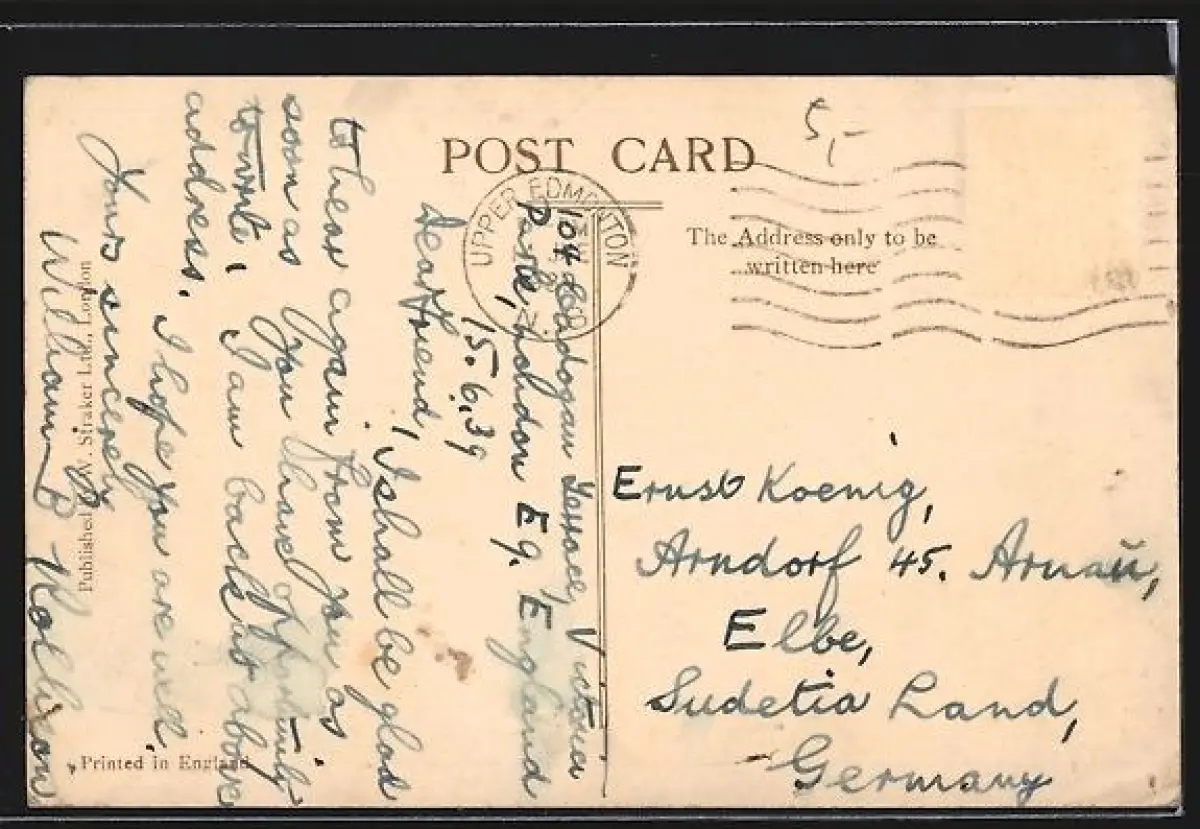 POST CARD
The Address only to be
written here
5,-
UPPER EDMONTON
104 Cadogan Terrace, Victoria
Park, London E9. England
15.6.39
Dear Friend, I shall be glad
to hear again from you as
soon as you have opportunity
to write, I am back at above
address. I hope you are well.
Yours sincerely
William B
Ernst Koenig,
Arndorf 45. Arnau,
Elbe,
Sudetia Land,
Germany
Published W. Straker Ltd., London
Printed in England